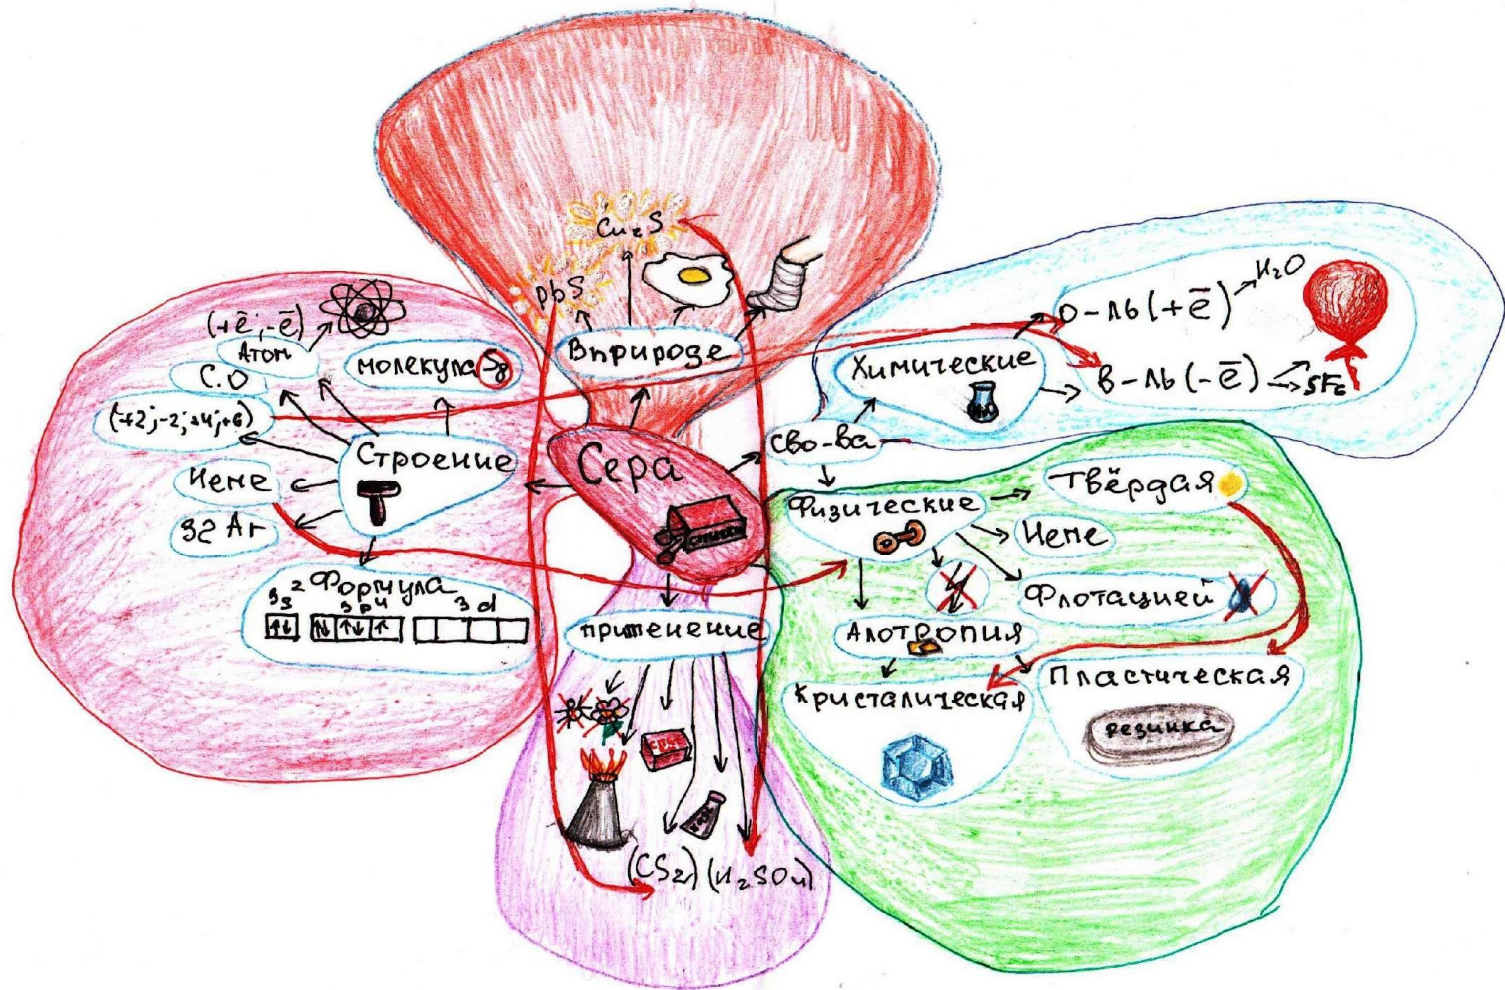 Сера
спички
В природе
Cu₂S
PbS
Строение
(+ē; -ē)
Атом
молекула S₈
С.О
(+2; -2; +4; +6)
Неме
32 Ar
Формула
3s²
3p4
3d
сво-ва
Химические
H₂O
о-ль (+ē)
H₂O
в-ль (-ē)
SF₆
Физические
Твёрдая
Неме
Флотацией
Алотропия
Кристалическая
Пластическая
резинка
применение
(CS₂) (H₂SO₄)